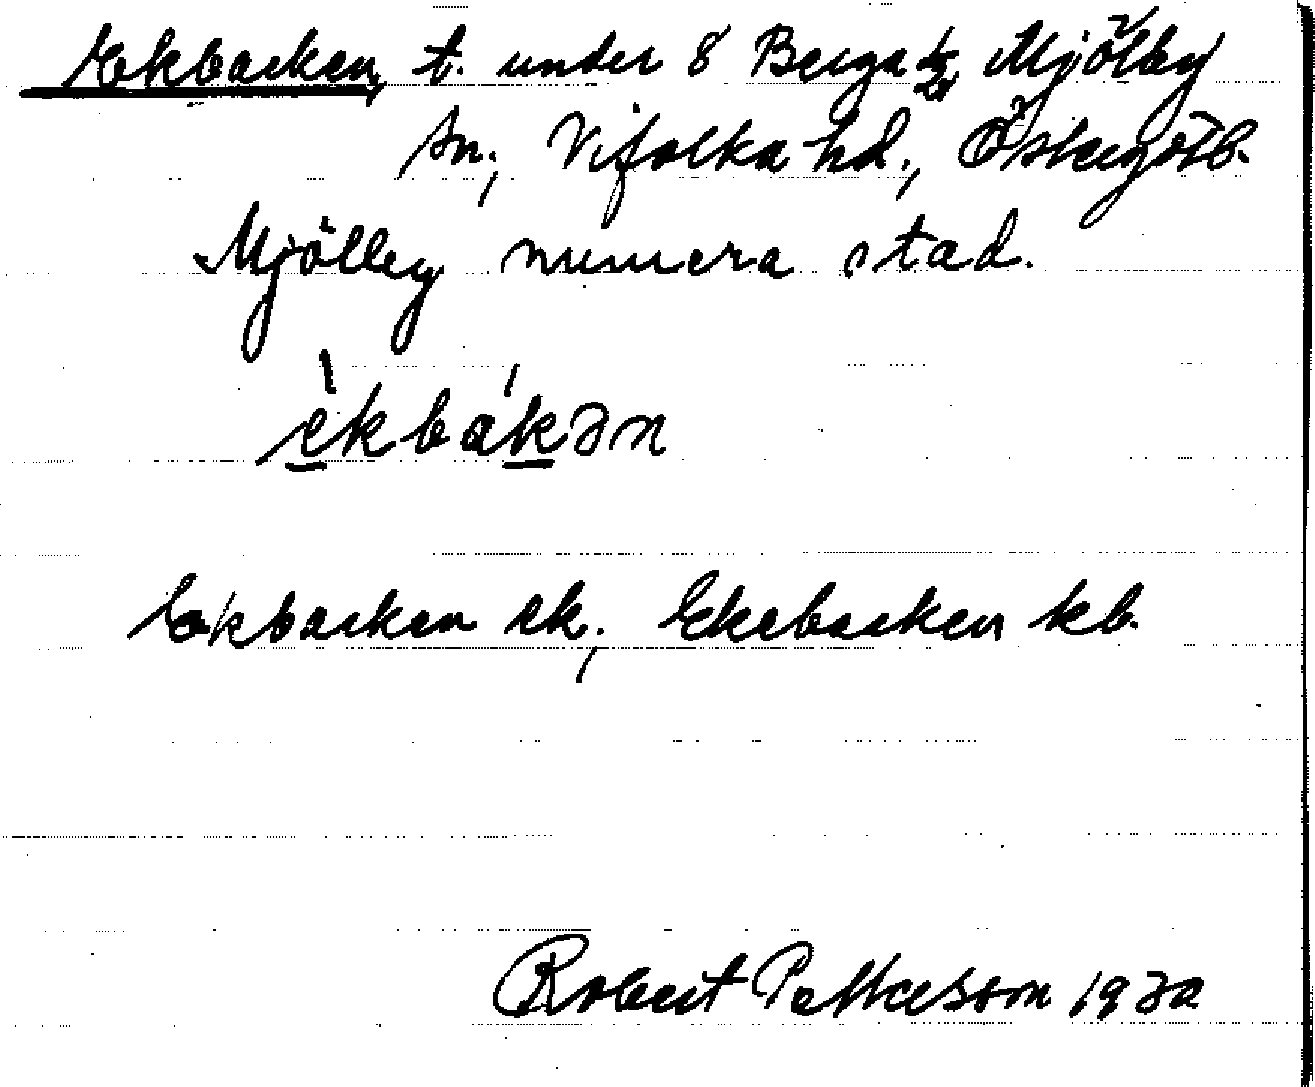 Ekbacken, t. under 8 Berga by, Mjölby
sn., Vifolka hd., Östergötl.
Mjölby numera stad.
èkbákən
Ekbacken ek., Ekebacken kb.
Robert Pettersson 1930